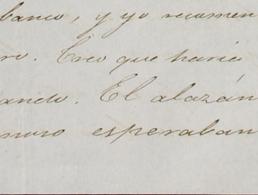 banco, y yo recomen
ro. Creo que haria
ando. El alazán
moro esperaban